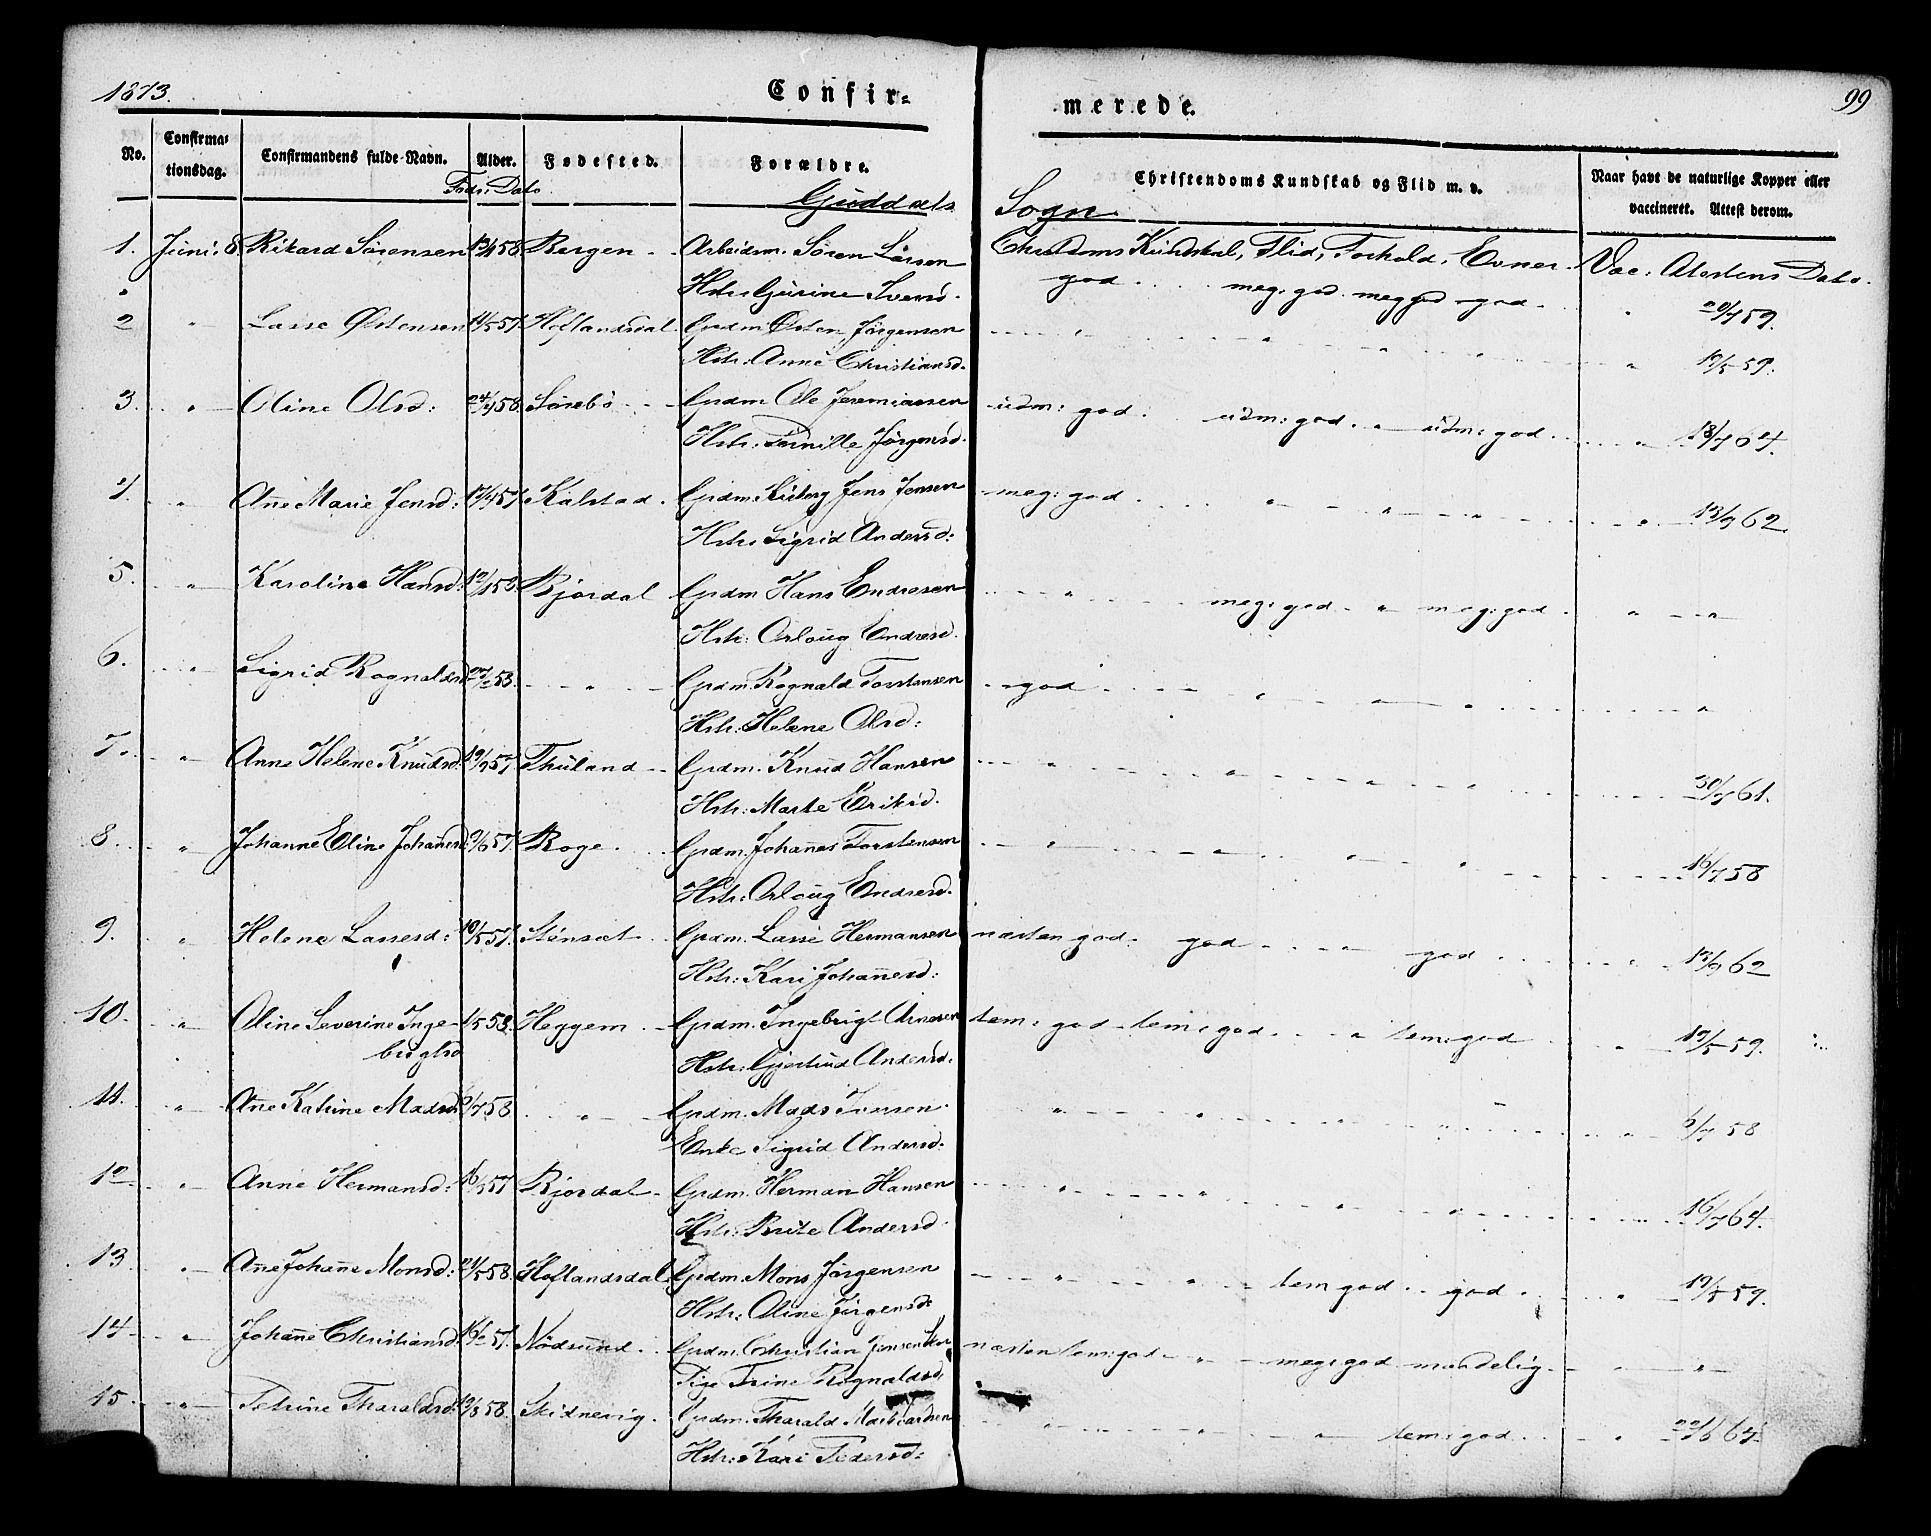 1873.
Confir=
merede.
99
No.
Confirma=
tionsdag.
Confirmandens fulde Navn.
Alder.
Føds: Dato
Fødested.
Forældre.
Christendoms Kundskab og Flid m. v.
Naar havt de naturlige Kopper eller
vaccineret. Attest derom.
Guddals
Sogn
1. Juni: 8. Rikard Sørensen 58 Bergen - - Arbeidsm. Søren Larsen
Hstr: Gurine Iversd.
Christdoms Kundskab, Flid, Forhold, Evner. Vac: Atestens Dato.
god . . . . meg: god. meg god - god. 20/7 59.
2 " Lasse Østensen 57 Hoflandsdal. Grdm. Østen Jørgensen
Hstr. Anne Christiansd.
" " " " " 19/5 59.
3. " Oline Olsd: 24/4 58. Sørebø - - Grdm. Ole Jeremiassen
Hstr. Pernille Jørgensd.
udm: god. udm: god. " udm: god. " 18/7 64.
4. " Ane Marie Jensd: 57 Kalstad. Grdm. Jens Jensen
Hstr. Sigrid Andersd:
meg: god. " " " " " 13/9 62.
5. " Karoline Hansd. Bjørdal Grdm Hans Endresen
Hstr: Orloug Endresd.
" meg: god. " meg: god. " "
6. " Sigrid Rognaldsd. " Grdm. Rognald Torstensen
Hstr: Helene Olsd:
god " " " "
7. " Anne Helene Knudsd. 19/9 57 Thuland - - Grdm. Knud Hansen
Hstr: Marte Eriksd.
" " " " " 30/7 61.
8. " Johanne Eline Johannsd. 9/6 57. Roge. Grdm. Johanes Torstensen
Hstr: Orloug Endresd.
" " " " " 16/7 58
9. " Helene Lassesd: 10/5 57. Stensæt. Grdm. Lasse Hermansen
Hstr: Kari Johannesd:
næsten god. god " god " 13/9 62
10. " Oline Severine Inge-
brigtsd 58. Heggem. - Grdm. Ingebrigt Arnesen
Hstr: Gjertrud Andersd.
tem: god - tem: god . . . " tem: god " 19/5 59.
11. " Ane Katrine Madsd. 58 " Grdm. Mads Iversen
Enke Sigrid Andersd.
" " " " " 6/7 58
12 " Anne Hermansd: 57 Bjørdal - Grdm. Herman Hansen
Hstr: Brite Andersd.
" " " " " 16/7 64.
13. " Ane Johane Monsd: 21/5 58. Hoflandsdal. Grdm. Mons Jørgensen
Hstr: Oline Jørgensd:
" " tem god. . god. " 19/5 59.
14. " Johane Christiansd. Nødsund. Grdm. Christian Jensen
Pige Trine Rognaldsd.
næsten tem: god - " - meg: god maadelig. - " "
15. " Petrine Tharaldsd. 58. Skidnevig. Grdm. Tharald
Hstr: Kari Pedersd:
" " " tem: god. " 22/6 64.